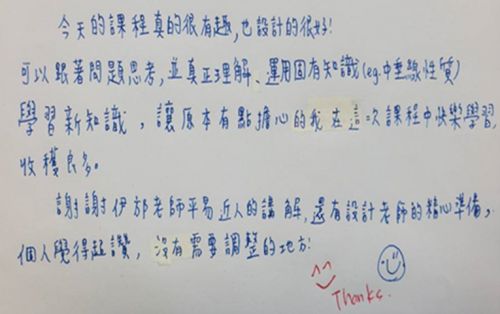 今天的課程真的很有趣,也設計的很好!
可以跟著問題思考,並真正理解、運用固有知識(eg.中垂線性質)
學習新知識,讓原本有點擔心的我在這次課程中快樂學習,
收穫良多。
謝謝伊郁老師平易近人的講解,還有設計老師的精心準備,
個人覺得超讚,沒有需要調整的地方!
^^
Thanks.